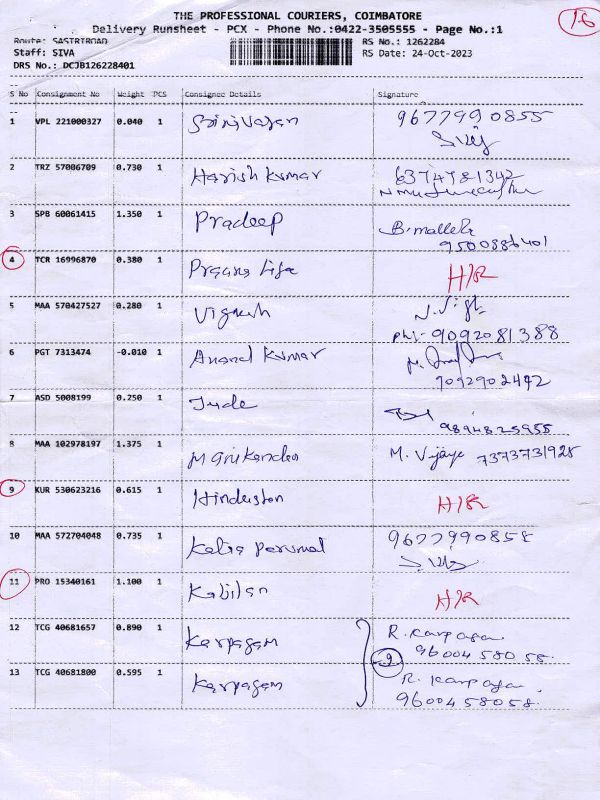 THE PROFESSIONAL COURIERS, COIMBATORE
Delivery Runsheet - PCX - Phone No.:0422-3505555 - Page No.:1
Route: SASTRIROAD RS No.: 1262284
Staff: SIVA RS Date: 24-Oct-2023
DRS No.: DCJB126228401
S No Consignment No Weight PCS Consignee Details Signature
1 VPL 221000327 0.040 1 Srinivasan 9677990855
2 TRZ 57006709 0.730 1 Harish Kumar 6374781342
3 SPB 60061415 1.350 1 Pradeep B. Mallela
9500886401
4 TCR 16996870 0.380 1 H/R
5 MAA 570427527 0.280 1 Vignesh
Ph:- 9092081388
6 PGT 7313474 -0.010 1 Anand Kumar
7092902492
7 ASD 5008199 0.250 1 Jude
9894825955
8 MAA 102978197 1.375 1 Manikandan M. Vijaya 7373731925
9 KUR 530623216 0.615 1 Hindustan H/R
10 MAA 572704048 0.735 1 Kalia Perumal 9677990858
11 PRO 15340161 1.100 1 Kabilan H/R
12 TCG 40681657 0.890 1 Karpagam R. Karpagam
9600458058
13 TCG 40681800 0.595 1 Karpagam R. Karpagam
9600458058